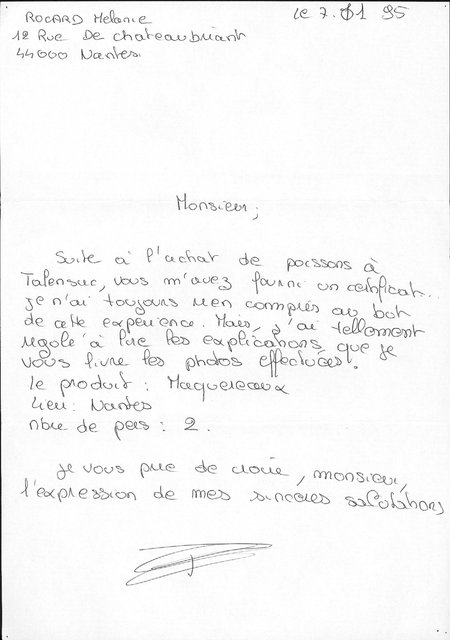 ROCARD Melanie
le 7.01 95
12 Rue De chateaubriant
44000 Nantes.
Monsieur,
Suite à l'achat de poissons à
Talensac, vous m'avez fourni un certificat.
je n'ai toujours rien compris au but
de cette expérience. Mais, j'ai tellement
rigolé à lire les explications que je
vous livre les photos effectuées.
le produit : Maquereaux
lieu : Nantes
nbre de pers : 2.
je vous prie de croire, monsieur,
l'expression de mes sincères salutations